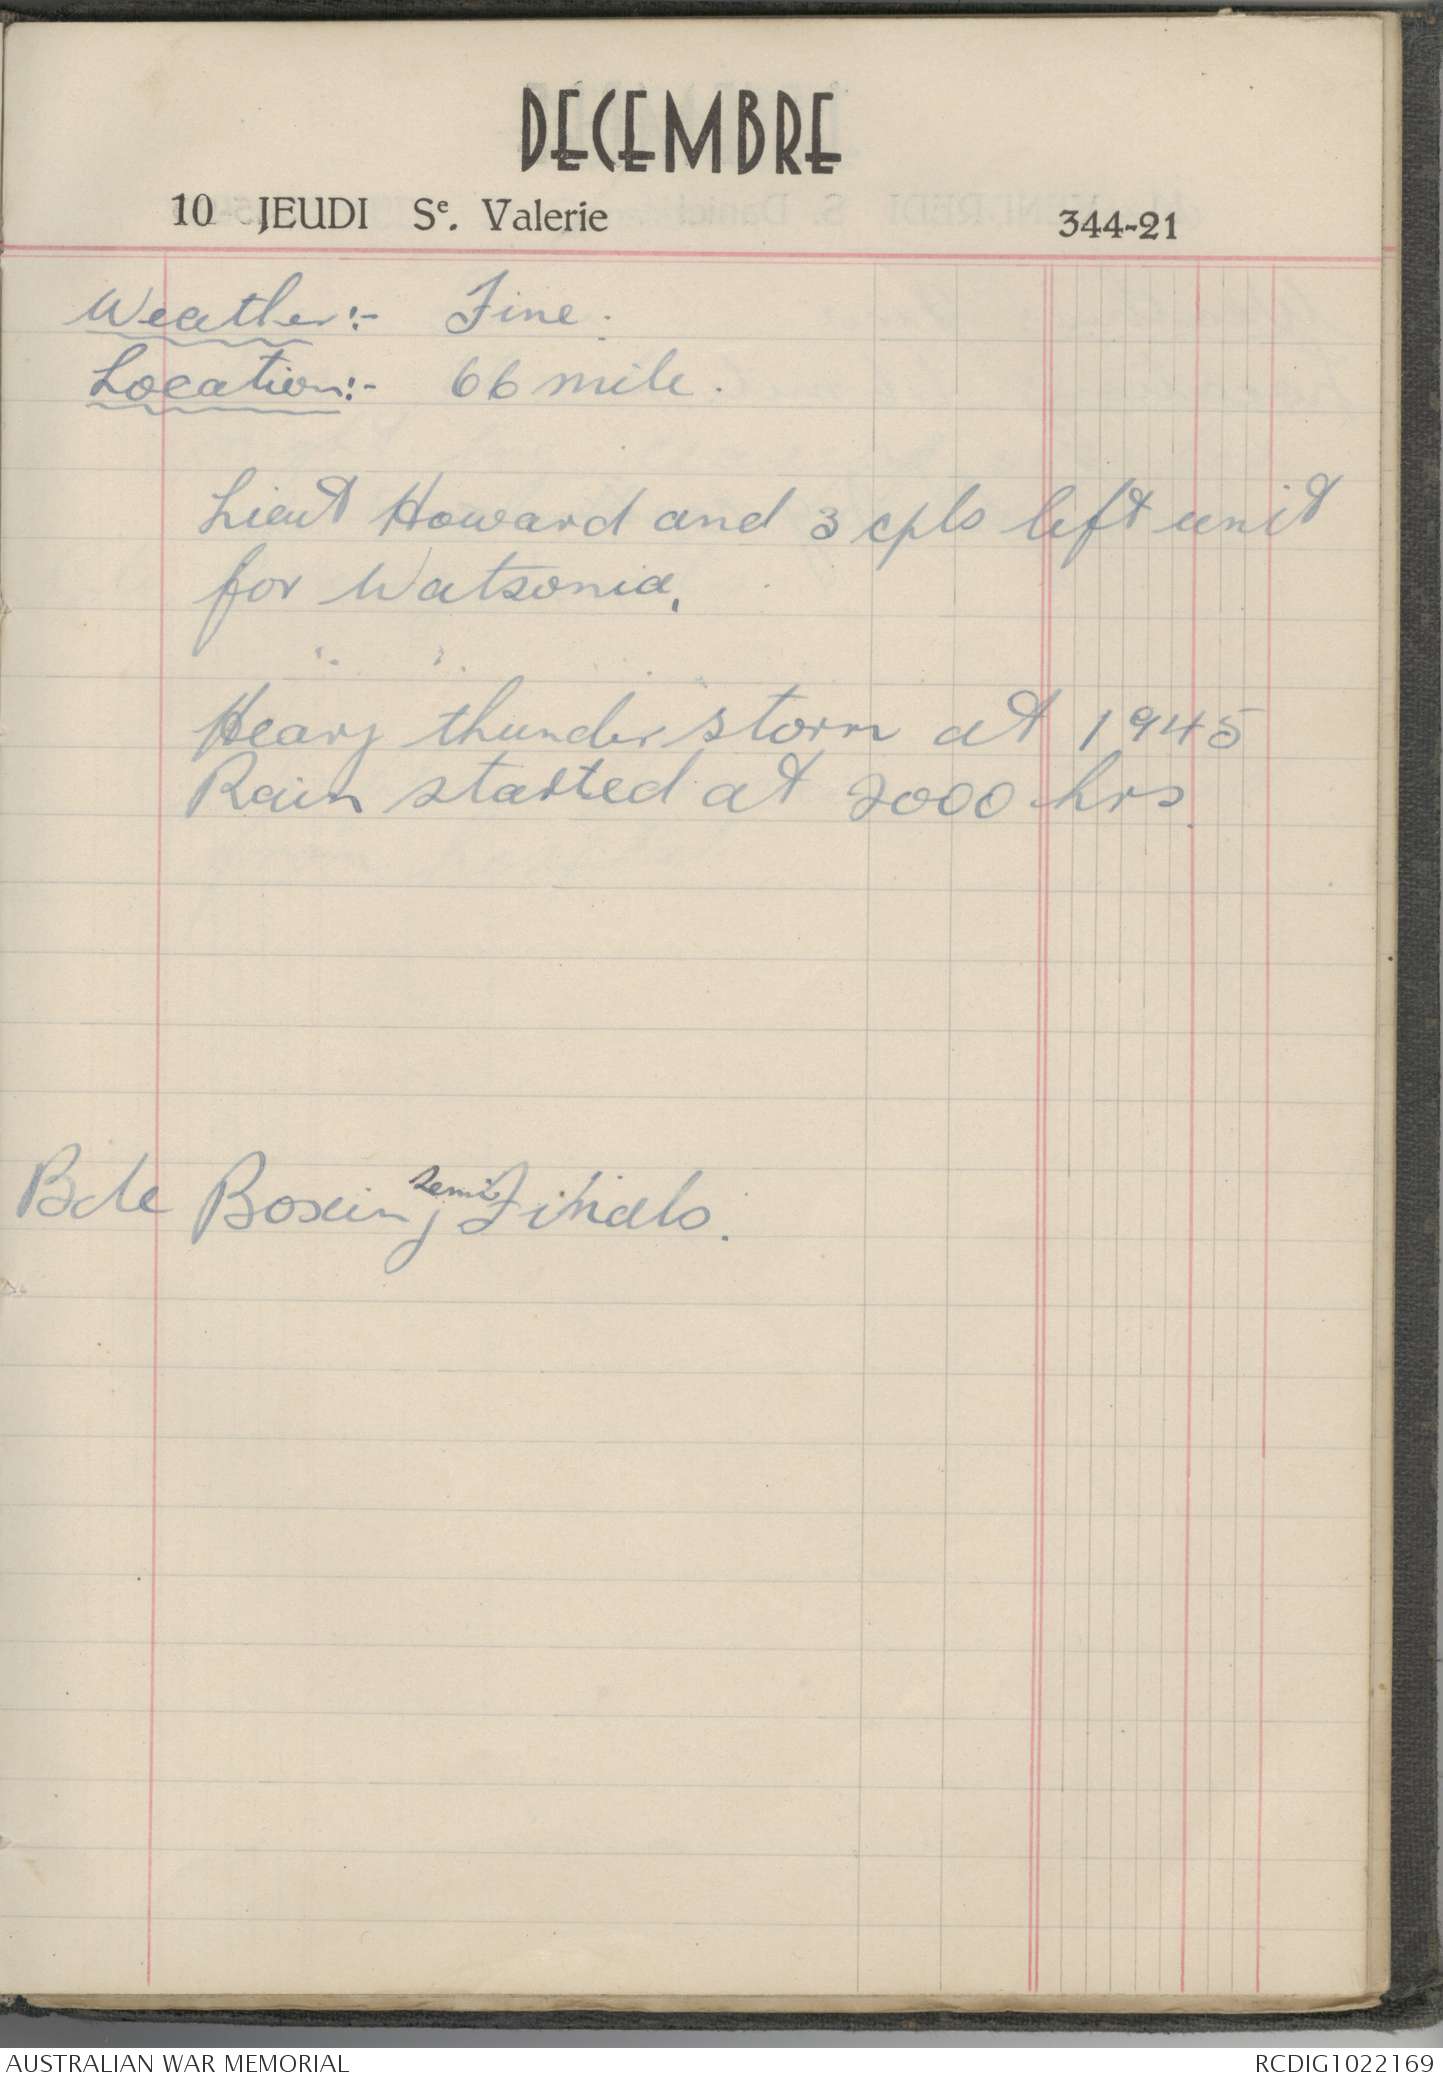 DECEMBRE
10 JEUDI Se. Valerie 344-21
Weather:- Fine.
Location:- 66 mile.
Lieut Howard and 3 cpls left unit
for Watsonia.
Heavy thunder storm at 1945
Rain started at 2000 hrs.
Bde Boxing semi Finals.
AUSTRALIAN WAR MEMORIAL RCDIG1022169